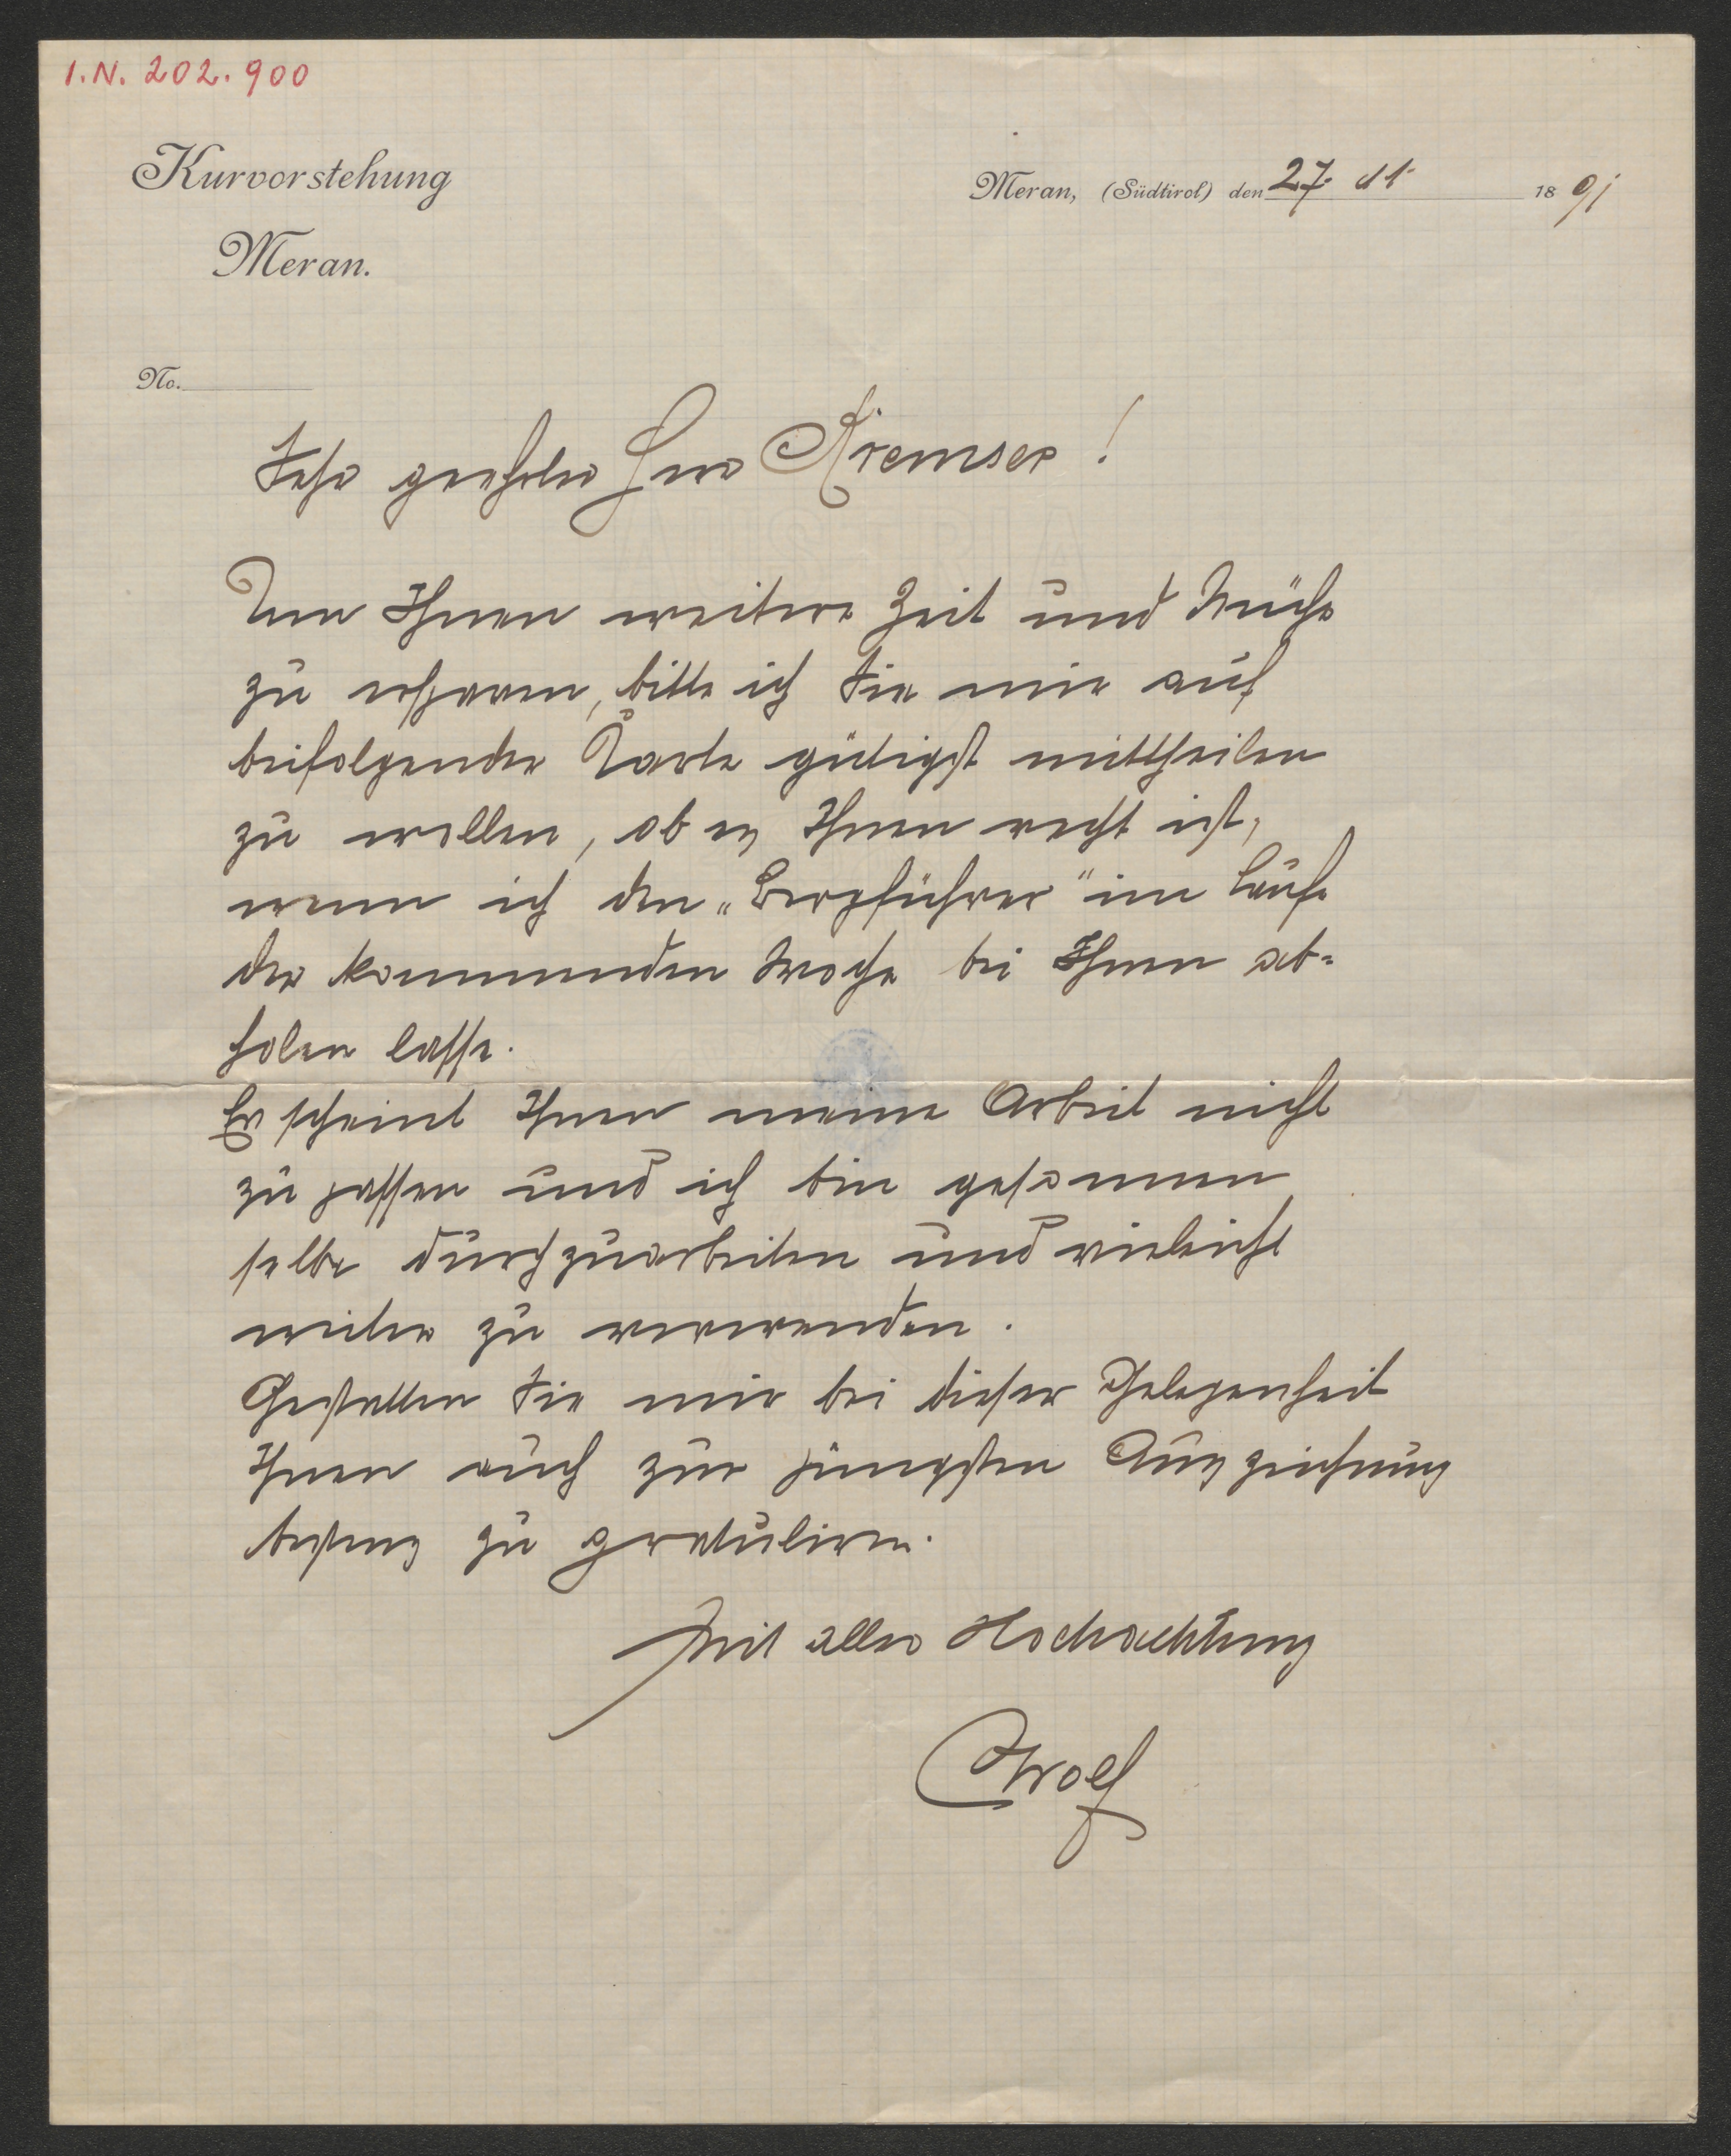 I.N. 202.900
Kurvorstehung
Meran.
Meran, (Südtirol) den 27. 11. 1891
No.
Sehr geehrter Herr Kremser!
Um Ihnen weitere Zeit und Mühe
zu ersparen, bitte ich Sie mir auf
beifolgender Karte gütigst mittheilen
zu wollen, ob es Ihnen recht ist,
wenn ich den „Bergführer" im Laufe
der kommenden Woche bei Ihnen ab-
holen lasse.
Es scheint Ihnen meine Arbeit nicht
zu passen und ich bin gesonnen
selbe durchzuarbeiten und vieleicht
weiter zu verwenden.
Gestatten Sie mir bei dieser Gelegenheit
Ihnen auch zur jüngsten Auszeichnung
bestens zu gratuliren.
Mit aller Hochachtung
CWolf